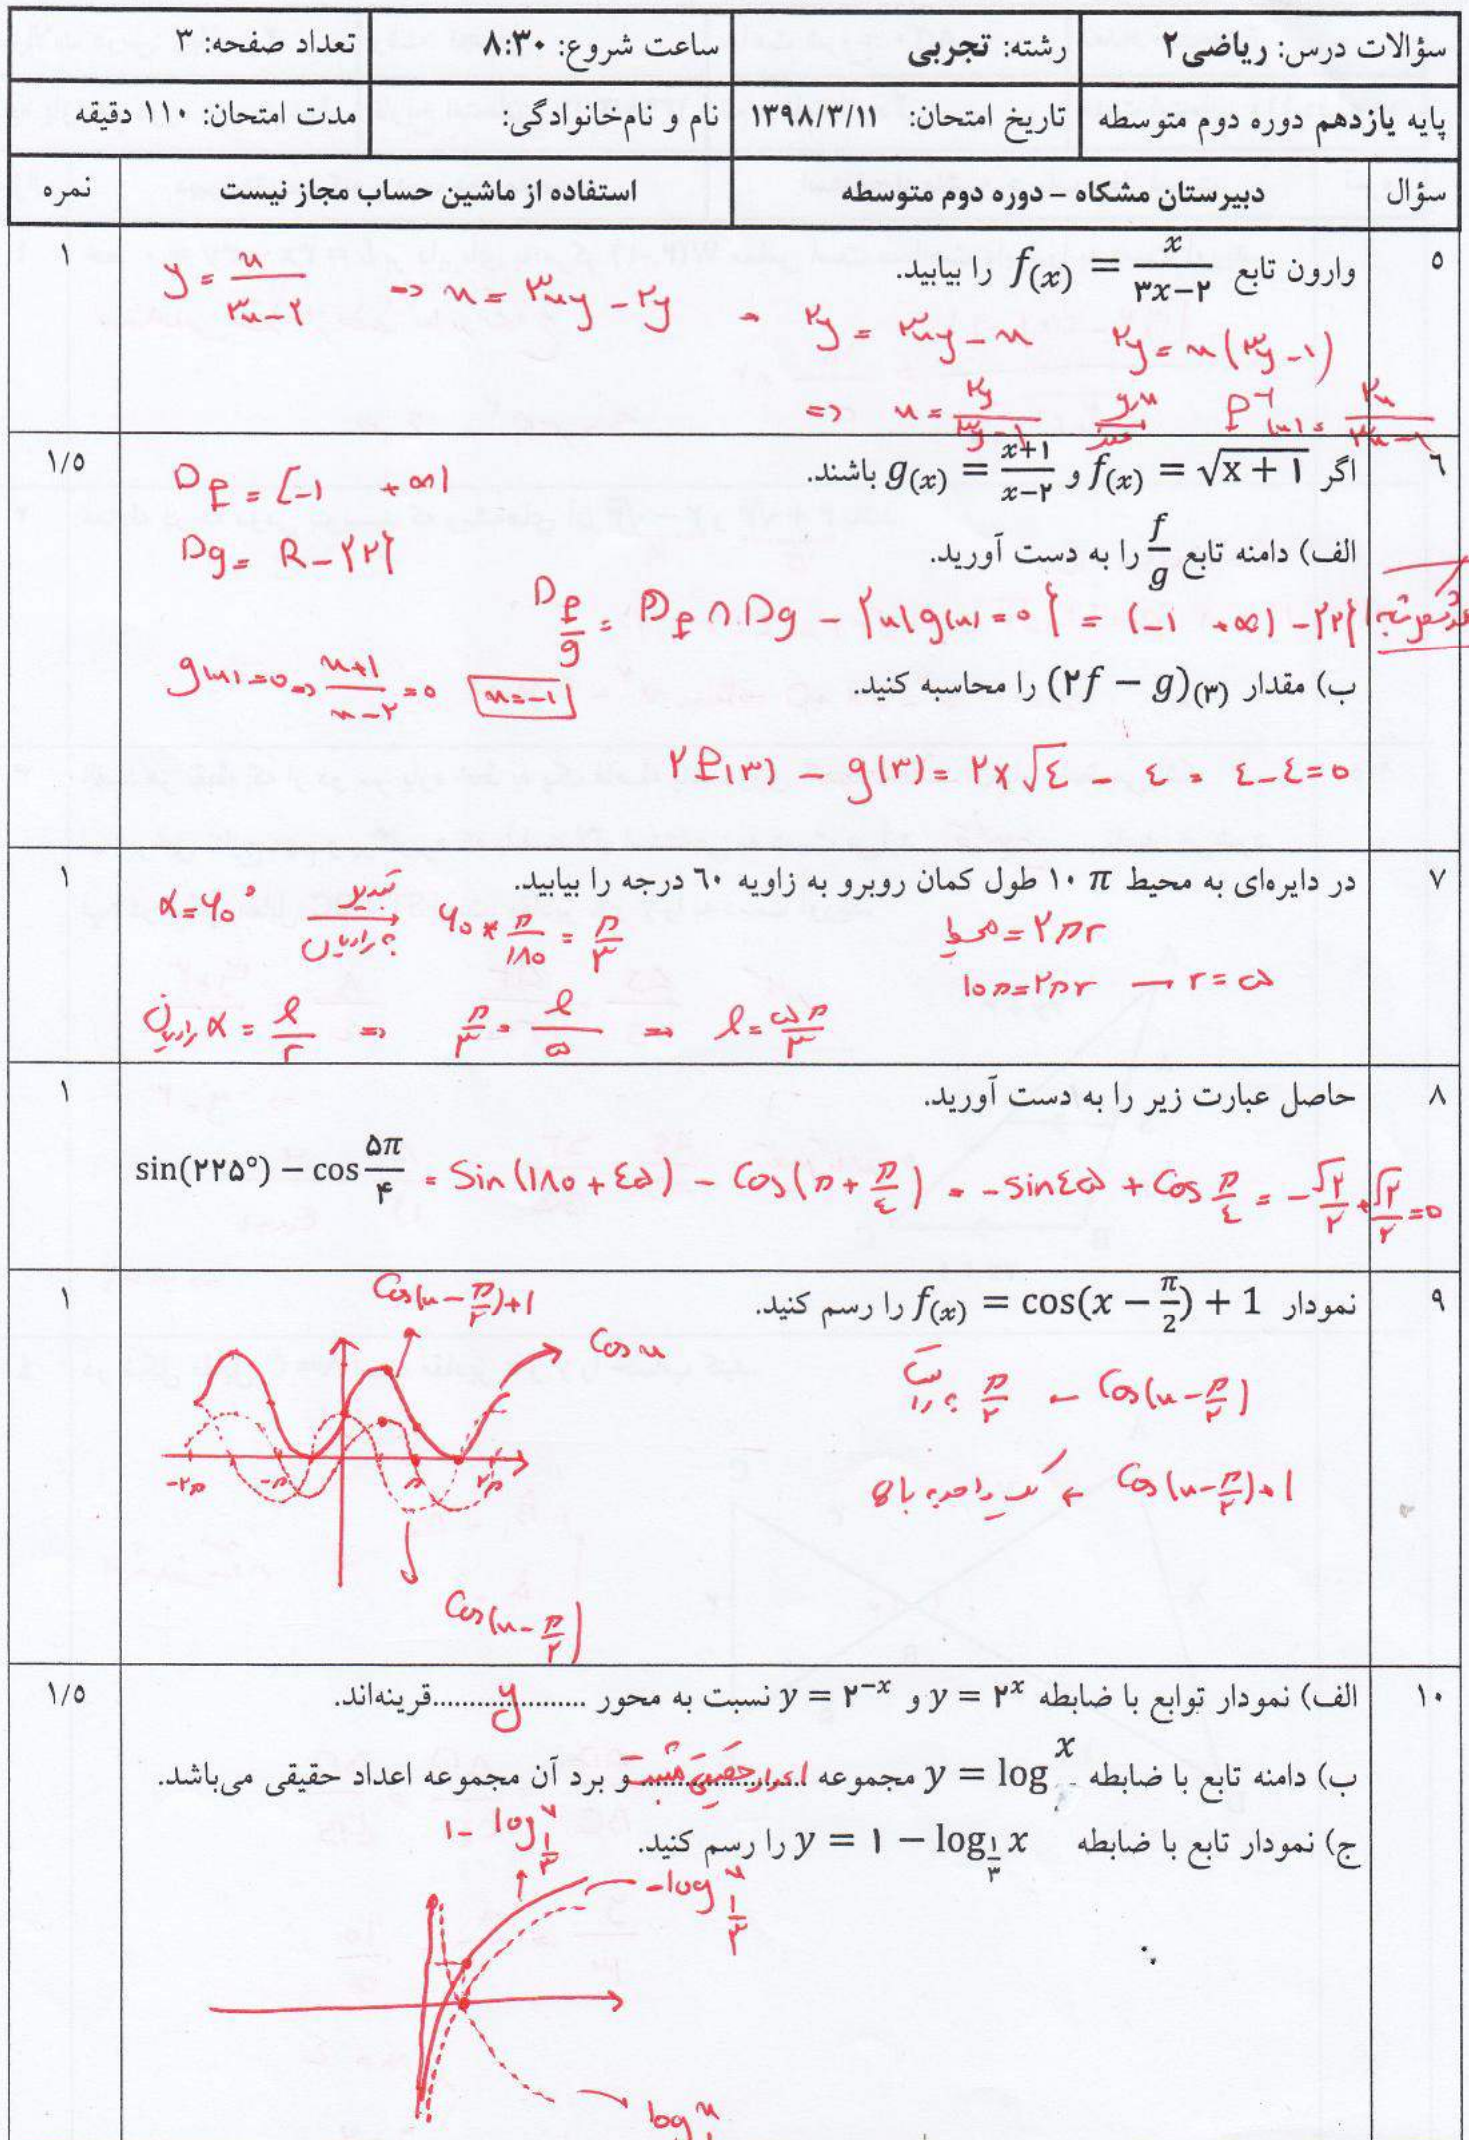 سؤالات درس: ریاضی۲ رشته: تجربی ساعت شروع: ۸:۳۰ تعداد صفحه: ۳
پایه یازدهم دوره دوم متوسطه تاریخ امتحان: ۱۳۹۸/۳/۱۱ نام و نام‌خانوادگی: مدت امتحان: ۱۱۰ دقیقه
سؤال دبیرستان مشکاه – دوره دوم متوسطه استفاده از ماشین حساب مجاز نیست نمره
۵ وارون تابع f(x) = x/(۳x−۲) را بیابید. ۱
y = x/(۳x−۲) => x = ۳xy − ۲y → ۲y = ۳xy − x ۲y = x(۳y −۱)
=> x = ۲y/(۳y−۱) f⁻¹(x) = ۲x/(۳x−۱)
۶ اگر f(x) = √(x + ۱) و g(x) = (x+۱)/(x−۲) باشند. ۱/۵
Df = [−۱ +∞)
الف) دامنه تابع f/g را به دست آورید.
Dg = R − {۲}
D f/g = Df ∩ Dg − {x| g(x) = ۰} = (−۱ +∞) − {۲}
ب) مقدار (۲f − g)(۳) را محاسبه کنید.
g(x) = ۰ => (x+۱)/(x−۲) = ۰ x=−۱
۲f(۳) − g(۳) = ۲×√۴ − ۴ = ۴−۴=۰
۷ در دایره‌ای به محیط ۱۰ π طول کمان روبرو به زاویه ۶۰ درجه را بیابید. ۱
α=۶۰° تبدیل به رادیان ۶۰ × π/۱۸۰ = π/۳
محیط = ۲πr
۱۰π=۲πr → r = ۵
رادیان α = l/r => π/۳ = l/۵ => l = ۵π/۳
۸ حاصل عبارت زیر را به دست آورید. ۱
sin(۲۲۵°) − cos ۵π/۴ = Sin (۱۸۰ + ۴۵) − Cos (π + π/۴) = −sin۴۵ + Cos π/۴ = −√۲/۲ + √۲/۲ = ۰
۹ نمودار f(x) = cos(x − π/2) + 1 را رسم کنید. ۱
Cos(x − π/۲)+۱
Cos x
Cos(x − π/۲) → π/۲ به راست
Cos(x−π/۲)+۱ → یک واحد به بالا
−۲π −π π ۲π
Cos(x − π/۲)
۱۰ الف) نمودار توابع با ضابطه y = ۲^x و y = ۲^−x نسبت به محور ......y......قرینه‌اند. ۱/۵
ب) دامنه تابع با ضابطه y = log x مجموعه اعداد حقیقی مثبت و برد آن مجموعه اعداد حقیقی می‌باشد.
ج) نمودار تابع با ضابطه y = ۱ − log۱/۳ x را رسم کنید.
۱− log x ۱/۳
−log x ۱/۳
log x